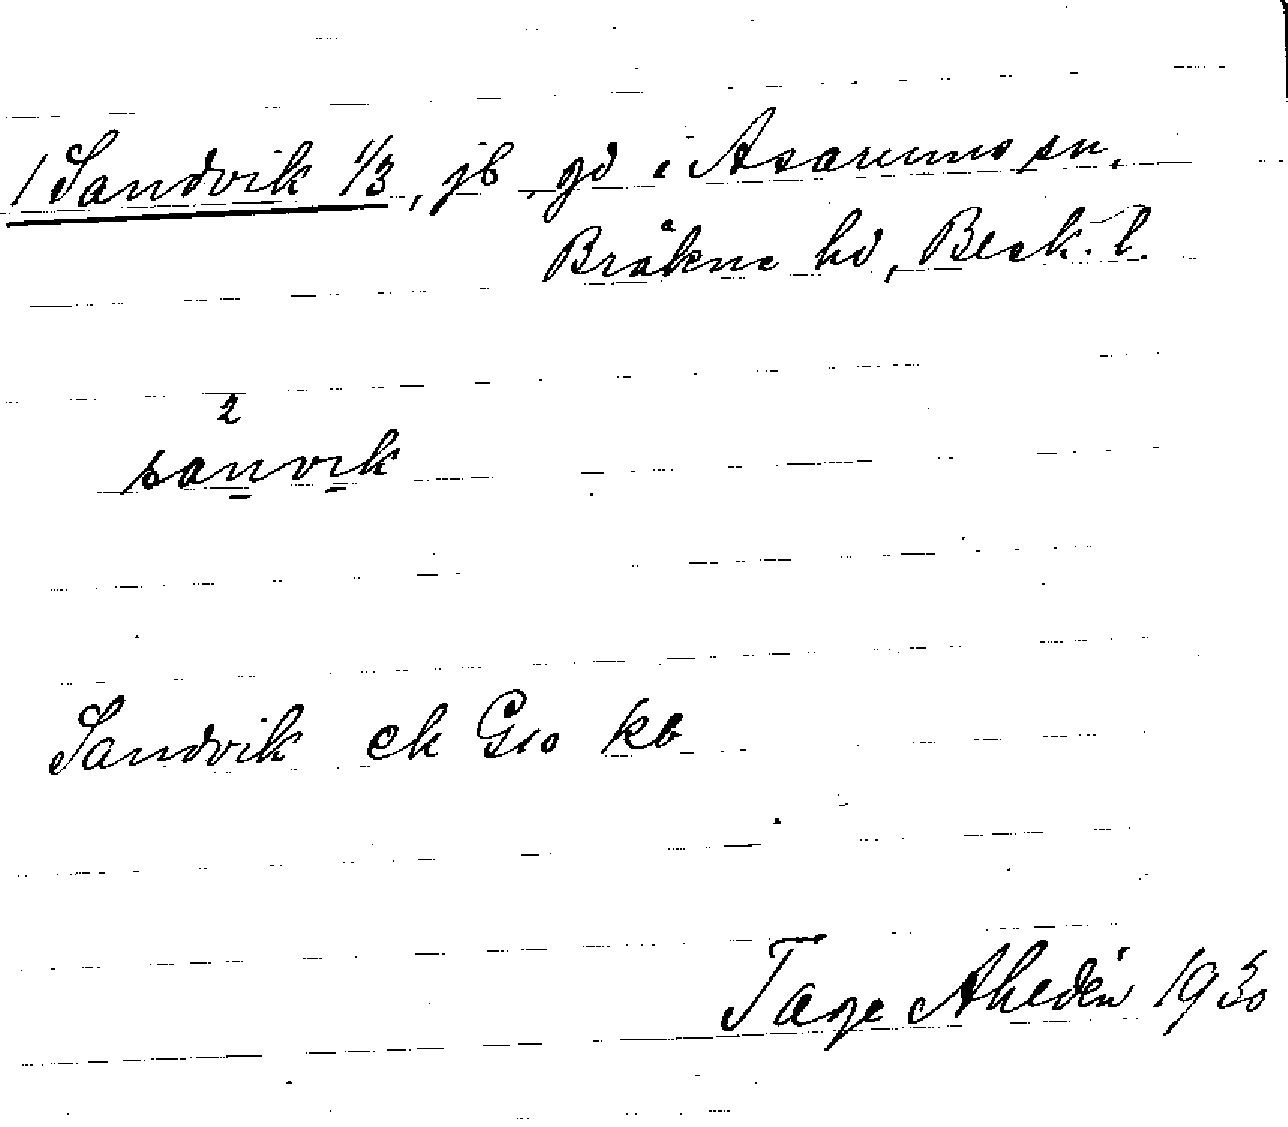 1 Sandvik 1/3, jb, gd i Asarums sn,
Bräkne hd, Blek. l.
2
sanvik
Sandvik ek G10 kb
Tage Ahldén 1930